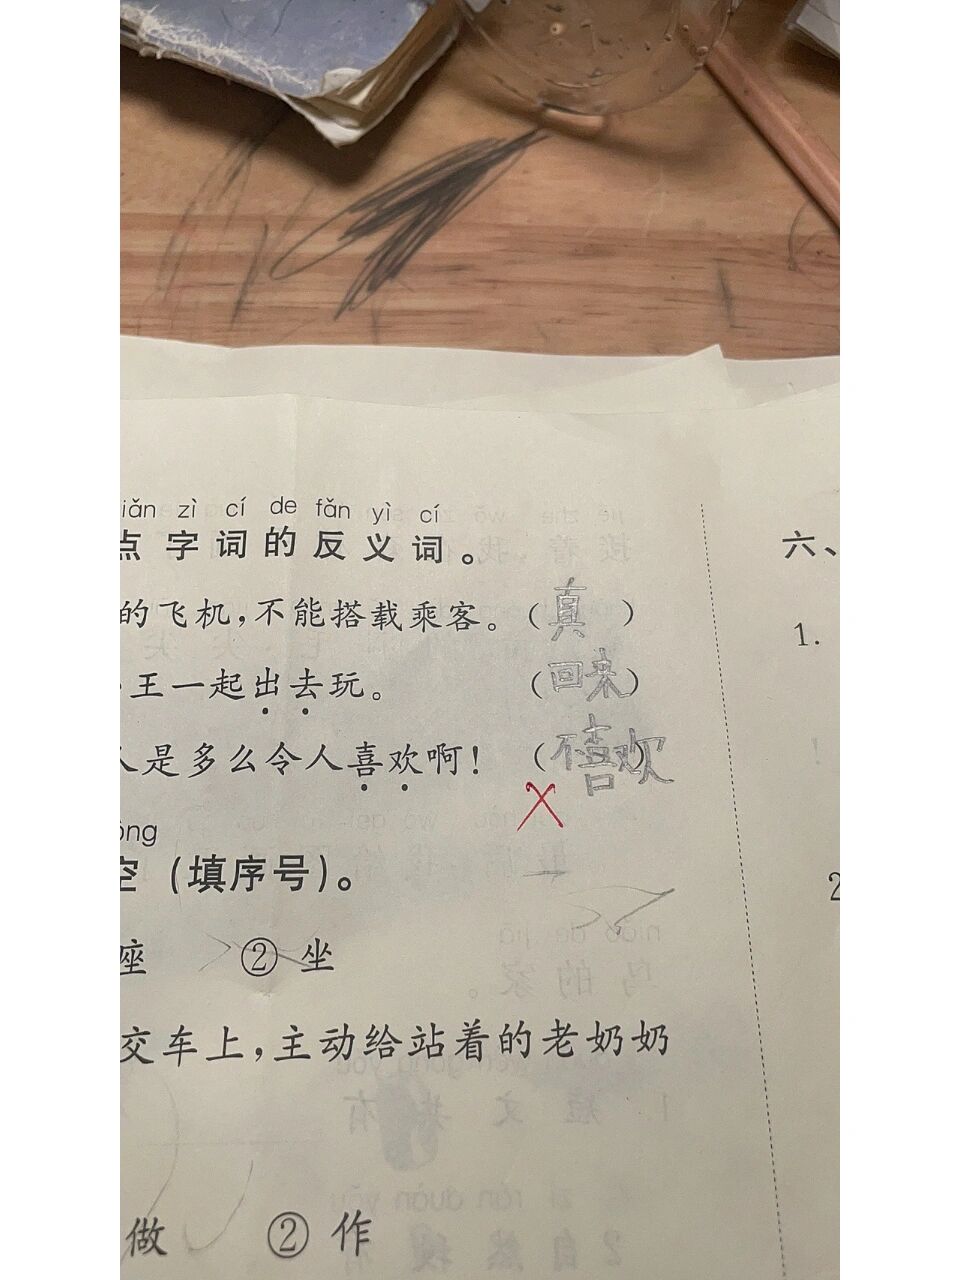 iǎn zì cí de fǎn yì cí
点字词的反义词。
的飞机，不能搭载乘客。（真）
王一起出去玩。（回来）
人是多么令人喜欢啊！（不喜欢）
òng
空（填序号）。
座 ② 坐
交车上，主动给站着的老奶奶
做 ② 作
六、
1.
2